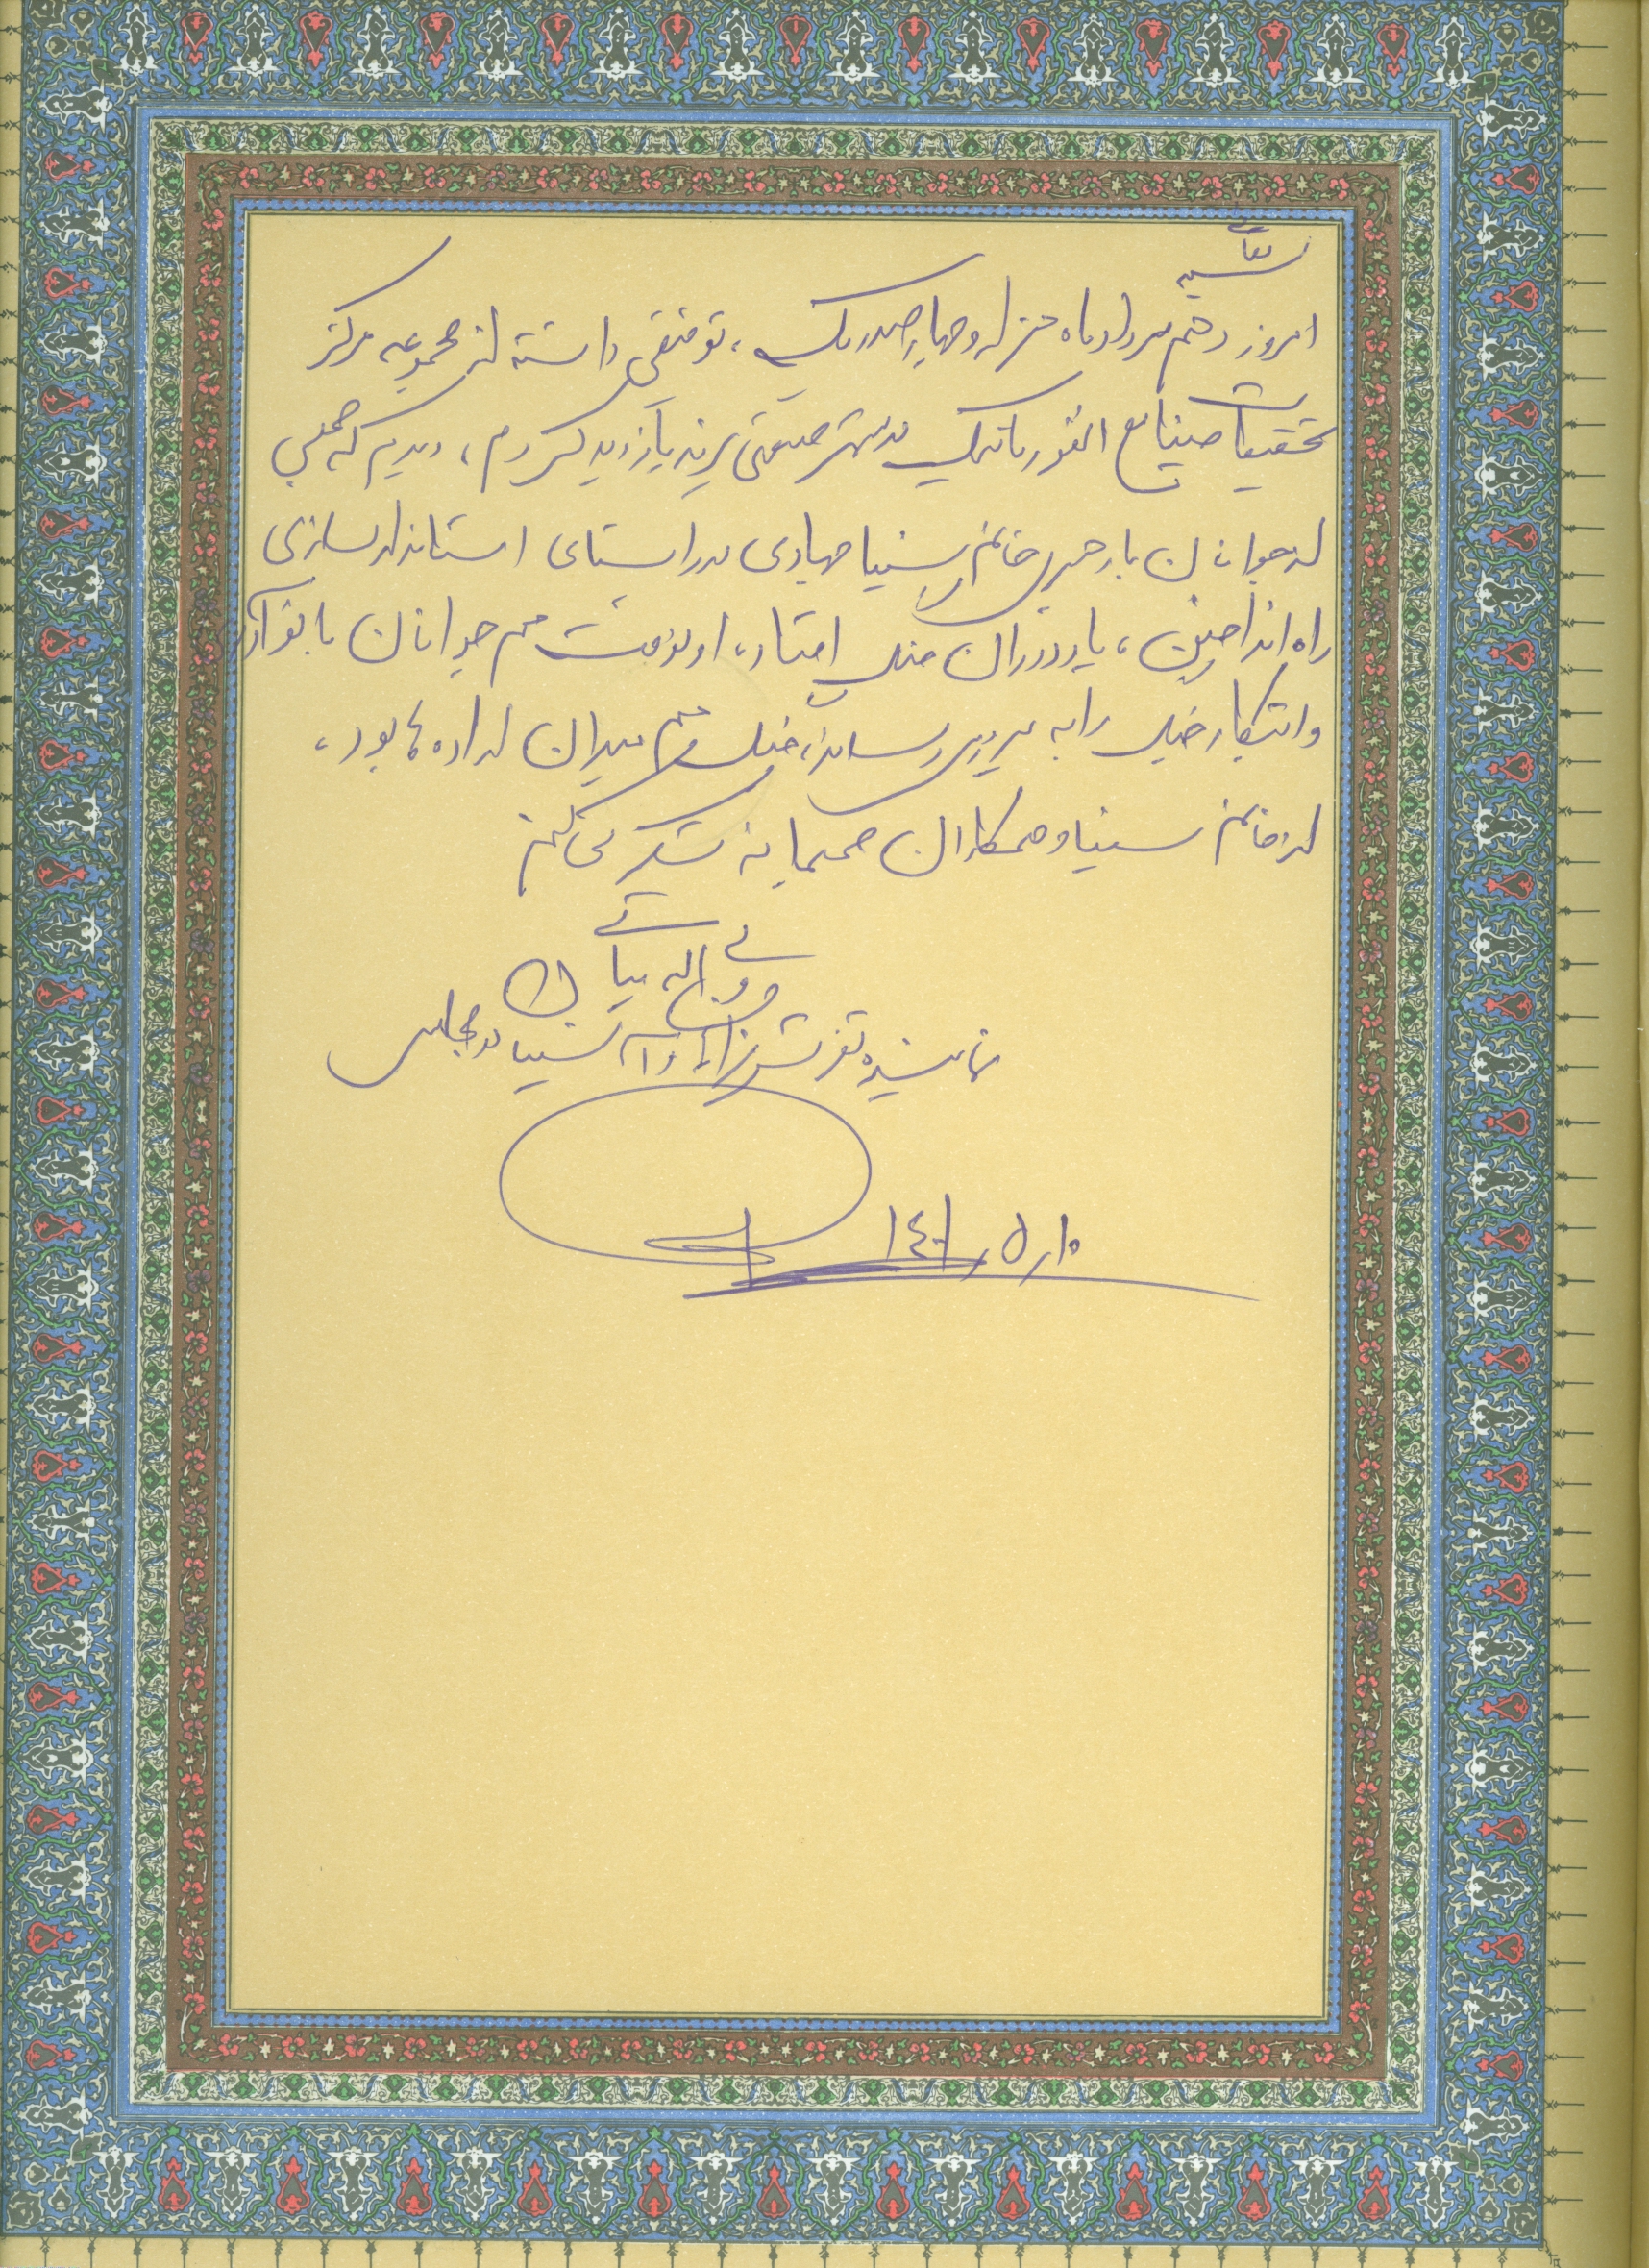 بسمه تعالی
امروز دهم مرداد ماه هزار و چهارصد و یک، توفیقی داشته از مجموعه مرکز
تحقیقات صنایع انفورماتیک در شهر صنعتی پرند بازدید کردم، دیدم که جمعی
از جوانان با رهبری خانم سینا جهادی در راستای استانداردسازی
راه انداختن، یاد دوران جنگ افتاد، او نوشت هم جوانان با نوآوری
و ابتکار جنگ را به پیروزی رساند، جنگ هم میدان اراده ها بود،
از خانم سینا و همکاران صمیمانه تشکر می کنم
ولی اله بیاتی
نماینده تفرش آشتیان و در مجلس
۱۴۰۱/۵/۱۰